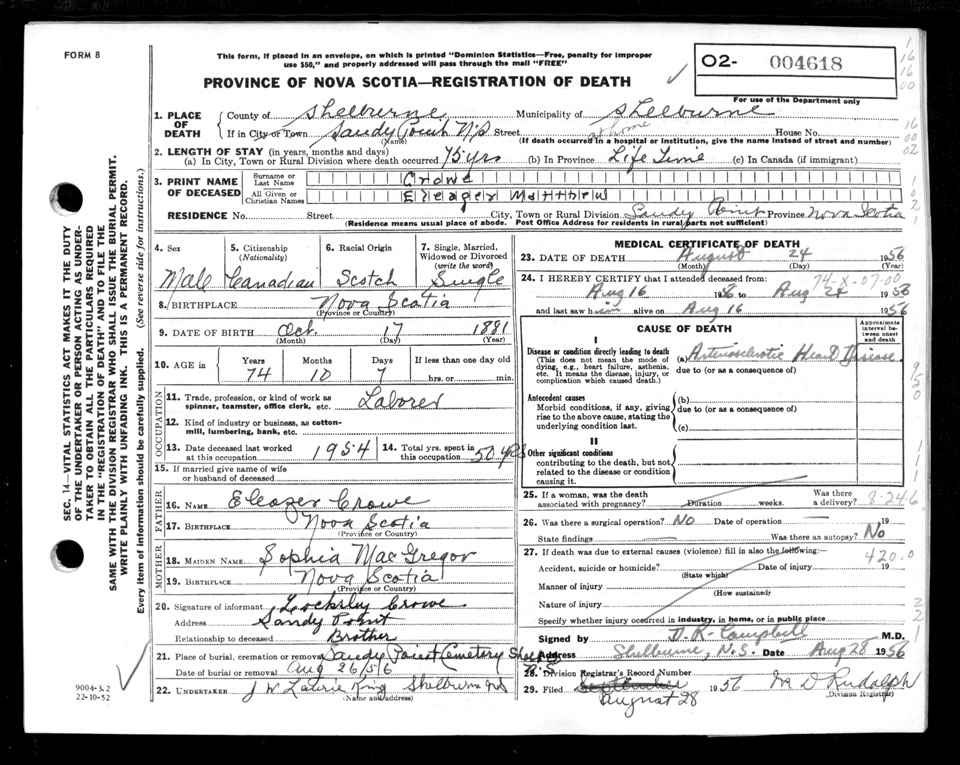 FORM 8
This form, if placed in an envelope, on which is printed "Dominion Statistics—Free, penalty for improper
use $50," and properly addressed will pass through the mail "FREE"
PROVINCE OF NOVA SCOTIA—REGISTRATION OF DEATH
O2- 004618
For use of the Department only
1. PLACE OF DEATH
County of Shelburne Municipality of Shelburne
If in City or Town Sandy Point N.S. Street at home House No.
(Name) (If death occurred in a hospital or institution, give the name instead of street and number)
2. LENGTH OF STAY (in years, months and days)
(a) In City, Town or Rural Division where death occurred 75 yrs (b) In Province Life Time (c) In Canada (if immigrant)
3. PRINT NAME OF DECEASED
Surname or Last Name Crowe
All Given or Christian Names Eleazer Matthew
RESIDENCE No. Street City, Town or Rural Division Sandy Point Province Nova Scotia
(Residence means usual place of abode. Post Office Address for residents in rural parts not sufficient)
4. Sex 5. Citizenship (Nationality) 6. Racial Origin 7. Single, Married, Widowed or Divorced (write the word)
Male Canadian Scotch Single
8. BIRTHPLACE Nova Scotia
(Province or Country)
9. DATE OF BIRTH Oct. 17 1881
(Month) (Day) (Year)
10. AGE in Years Months Days If less than one day old
74 10 7 hrs. or min.
OCCUPATION
11. Trade, profession, or kind of work as
spinner, teamster, office clerk, etc. Laborer
12. Kind of industry or business, as cotton-
mill, lumbering, bank, etc.
13. Date deceased last worked at this occupation 1954 14. Total yrs. spent in this occupation 50 yrs
15. If married give name of wife
or husband of deceased
FATHER
16. NAME Eleazer Crowe
17. BIRTHPLACE Nova Scotia
(Province or Country)
MOTHER
18. MAIDEN NAME Sophia MacGregor
19. BIRTHPLACE Nova Scotia
(Province or Country)
20. Signature of informant Locksley Crowe
Address Sandy Point
Relationship to deceased Brother
21. Place of burial, cremation or removal Sandy Point Cemetery
Date of burial or removal Aug 26/56 N.S.
22. UNDERTAKER J W Laurie King Shelburne N.S.
(Name and address)
MEDICAL CERTIFICATE OF DEATH
23. DATE OF DEATH August 24 1956
(Month) (Day) (Year)
74-X-07-00
24. I HEREBY CERTIFY that I attended deceased from:
Aug 16 1956 to Aug 24 1956
and last saw him alive on Aug 16 1956
CAUSE OF DEATH
Approximate interval between onset and death
I
Disease or condition directly leading to death (a) Arteriosclerotic Heart Disease
(This does not mean the mode of
dying, e.g., heart failure, asthenia,
etc. It means the disease, injury, or
complication which caused death.)
due to (or as a consequence of)
Antecedent causes (b)
Morbid conditions, if any, giving
rise to the above cause, stating the
underlying condition last.
due to (or as a consequence of)
(c)
II
Other significant conditions
contributing to the death, but not
related to the disease or condition
causing it.
25. If a woman, was the death
associated with pregnancy? Duration weeks. Was there a delivery? 8-246
26. Was there a surgical operation? No Date of operation 19
State findings Was there an autopsy? No
27. If death was due to external causes (violence) fill in also the following:— 420.0
Accident, suicide or homicide? Date of injury 19
(State which)
Manner of injury
(How sustained)
Nature of injury
Specify whether injury occurred in industry, in home, or in public place
Signed by D. R. Campbell M.D.
Address Shelburne, N.S. Date Aug 28 1956
28. Division Registrar's Record Number
29. Filed September 1956 D Rudolph
August 28 (Division Registrar)
9004-3,2
22-10-52
SEC. 14—VITAL STATISTICS ACT MAKES IT THE DUTY
OF THE UNDERTAKER OR PERSON ACTING AS UNDER-
TAKER TO OBTAIN ALL THE PARTICULARS REQUIRED
IN THE "REGISTRATION OF DEATH" AND TO FILE THE
SAME WITH THE DIVISION REGISTRAR WHO SHALL ISSUE THE BURIAL PERMIT.
WRITE PLAINLY WITH UNFADING INK. THIS IS A PERMANENT RECORD.
Every item of information should be carefully supplied. (See reverse side for instructions.)